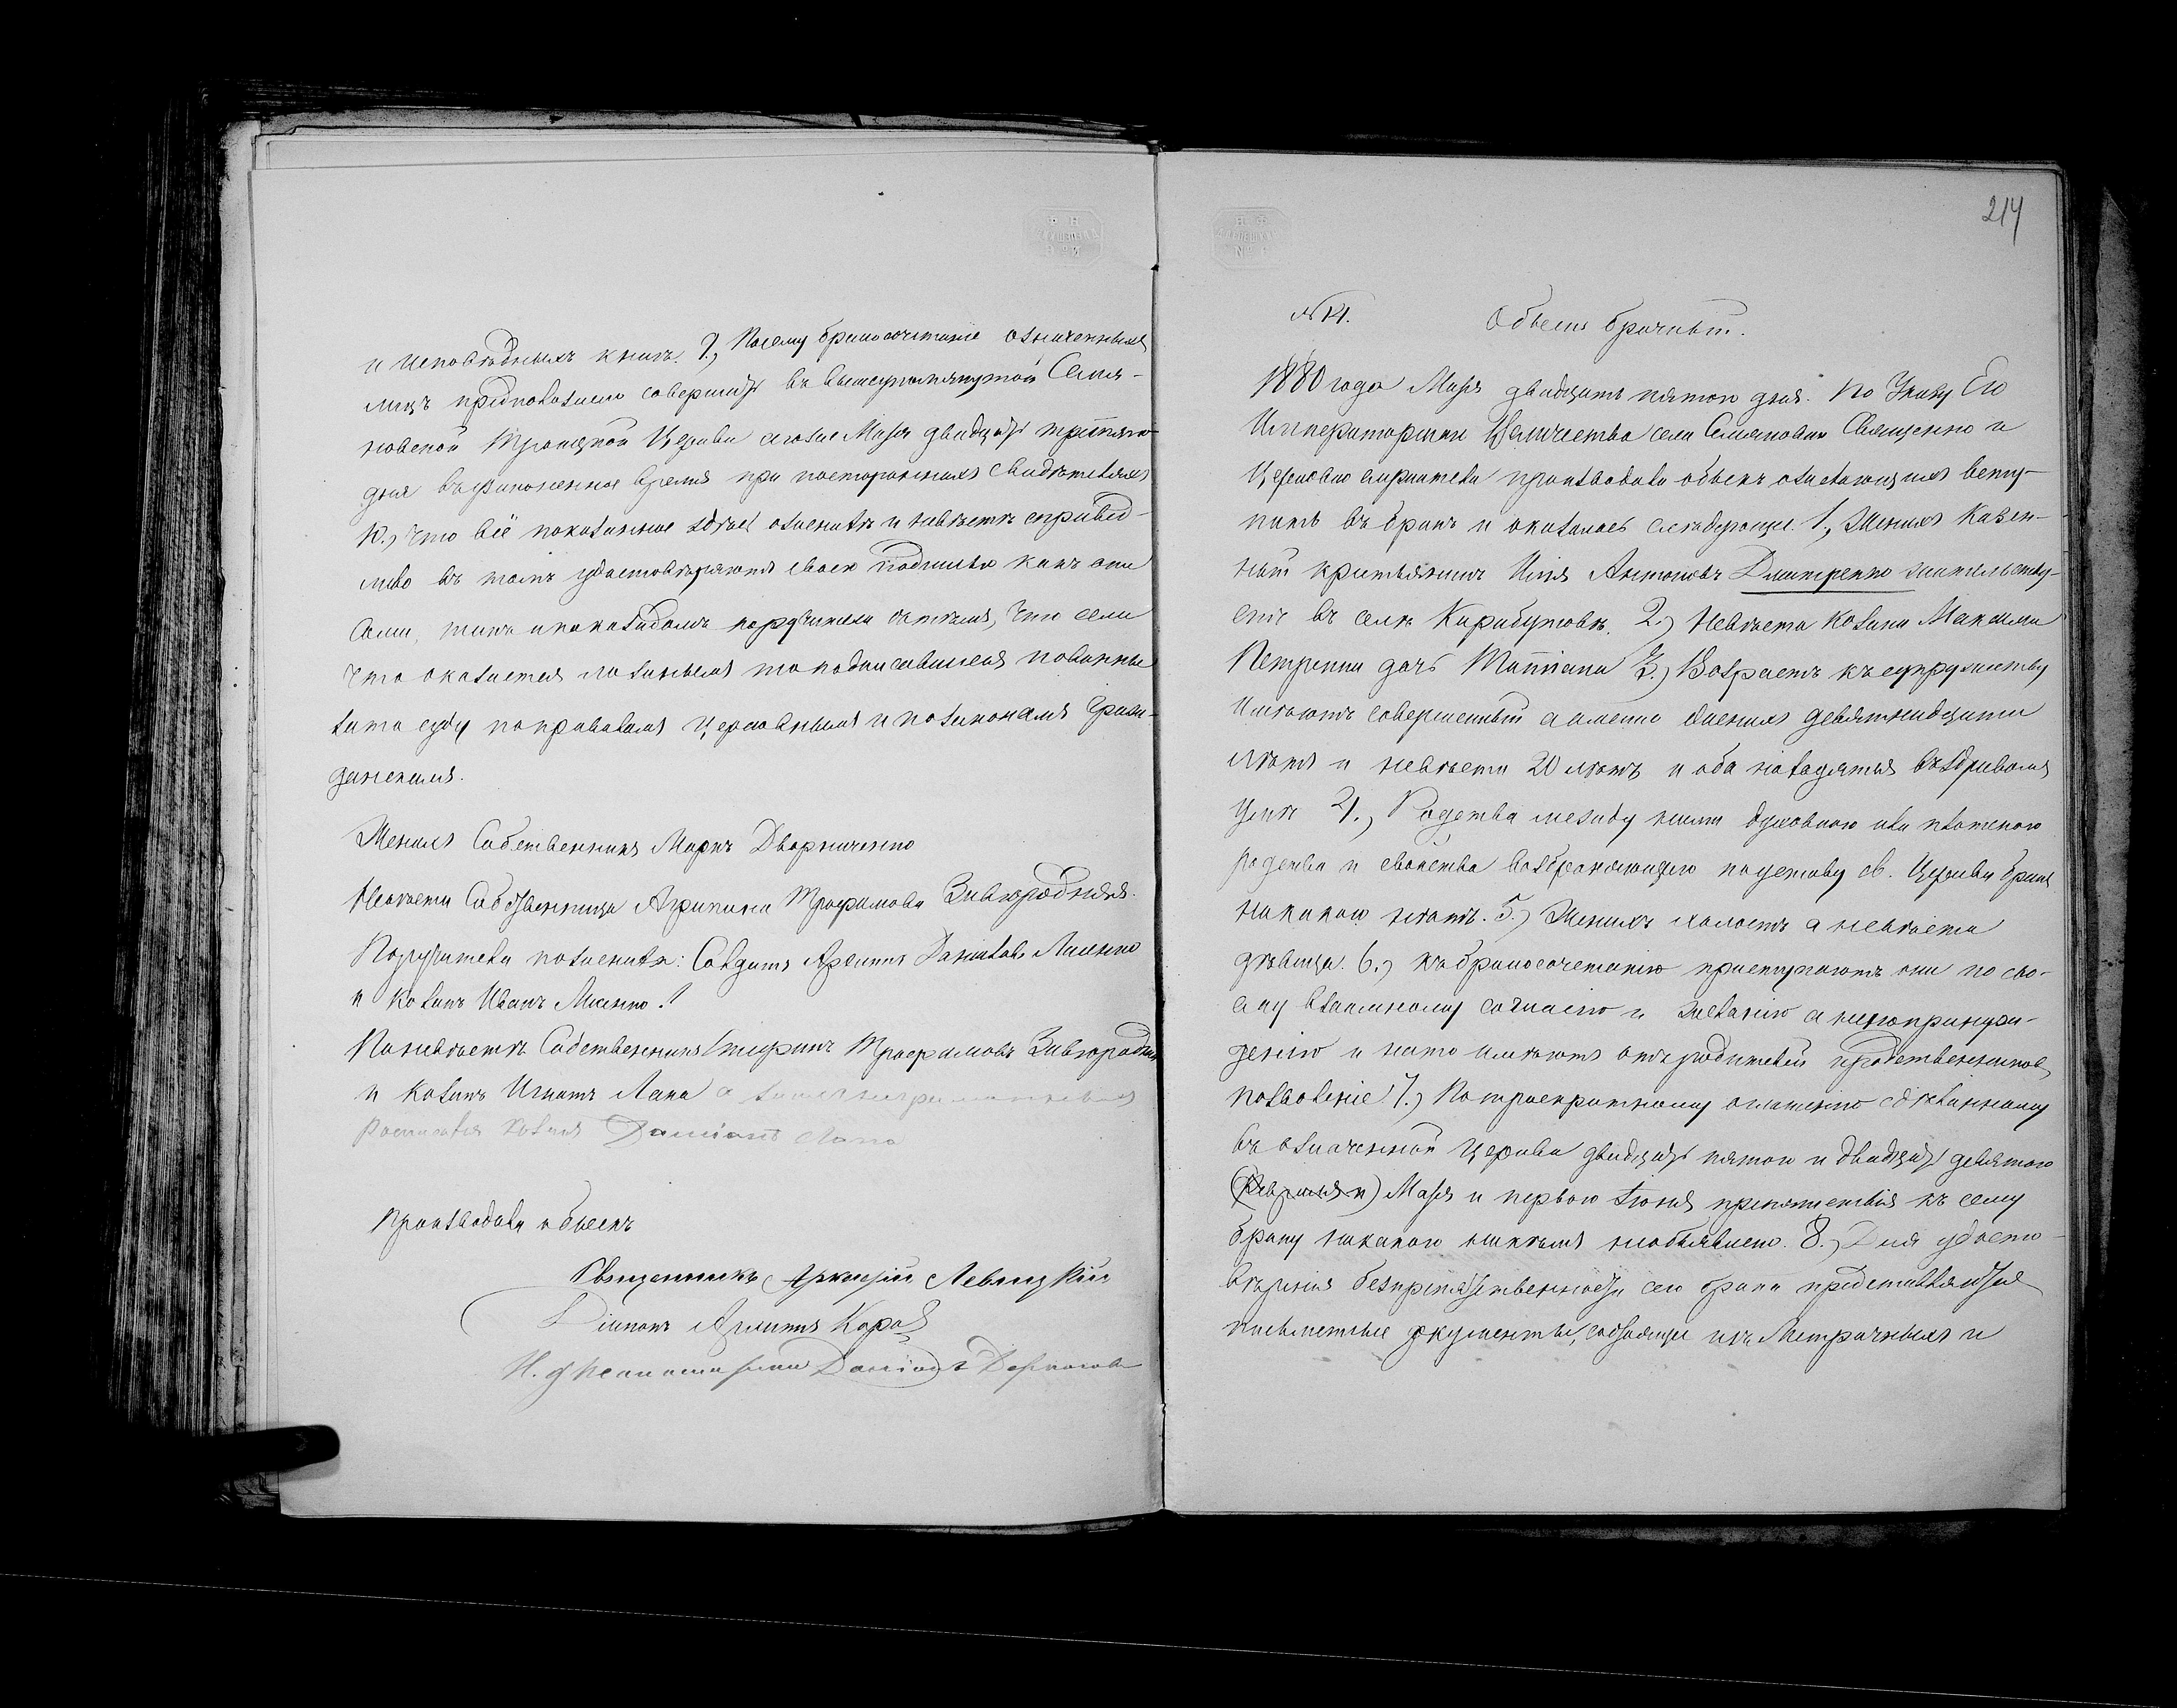 и исповѣдныхъ книгъ. 9., Посему бракосочетаніе означенныхъ
лицъ предположено совершить въ вышеупомянутой Семя-
новской Троицкой Церкви сего же Маія двадцать третьяго
дня въ узаконенное время при постороннихъ свидѣтеляхъ
10., Что всё показанное здѣсь о женихѣ и невѣстѣ справед-
ливо въ томъ удостовѣряютъ своею подписью какъ они
сами, такъ и по каждомъ поручители съ тѣмъ, что если
что окажется ложнымъ то подписавшіеся повинны
за то суду по правиламъ церковнымъ и по законамъ граж-
данскимъ.
Женихъ Собственникъ Маркъ Дворниченко
Невѣста Собственница Агрипина Трофимова Завгородняя.
Поручители по женихѣ: Солдатъ Архипъ Даниловъ Лименко
и козакъ Иванъ Мисенко.
По невѣстѣ Собственникъ Стефанъ Трофимовъ Завгородній
и козакъ Игнатъ Лапа а за ихъ неграмотныхъ
росписался козакъ Даміанъ Лапа
Производили обыскъ
Священникъ Аркадій Левицкій
Діаконъ
И. д. псаломщика Даміанъ
214
№ 14.
Обыскъ брачный.
1880 года Маія двадцать пятого дня. По Указу Его
Императорскаго Величества села Семяновки Священно и
Церковно служители производили обыскъ о желающихъ всту-
пить въ бракъ и оказалось слѣдующее. 1., Женихъ казен-
ный крестьянинъ Илія Антоновъ Дмитренко жительству-
етъ въ селѣ Карабутовкѣ. 2.) Невѣста козака Максима
Петренка дочь Татіана 3.) Возрастъ къ супружеству
имѣютъ совершенный а именно женихъ девятнадцати
лѣтъ и невѣста 20 лѣтъ и оба находятся въ здравомъ
умѣ 4., Родства между ними духовного или плотского
родства и свойства возбраняющаго по уставу св. Церкви бракъ
никакого нѣтъ. 5.) Женихъ холостъ а невѣста
дѣвица. 6.) Къ бракосочетанію приступаютъ они по сво-
ему взаимному согласію и желанію а не по принуж-
денію и на то имѣютъ отъ родителей и родственниковъ
позволеніе 7.) По троекратному оглашенію сдѣланному
въ означенной Церкви двадцать пятого и двадцать девятого
(Февраля и) Маія и первого Іюня препятствія къ сему
браку никакого никѣмъ не объявлено. 8.) Для удосто-
вѣренія безпрепятственности сего брака представляются
письменные документы, состоящіе изъ Метрическихъ и